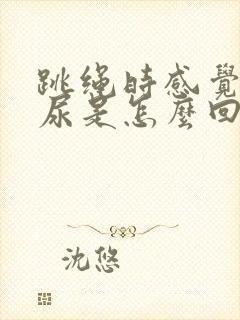 跳绳时感覺
尿是怎麼回
沈悠